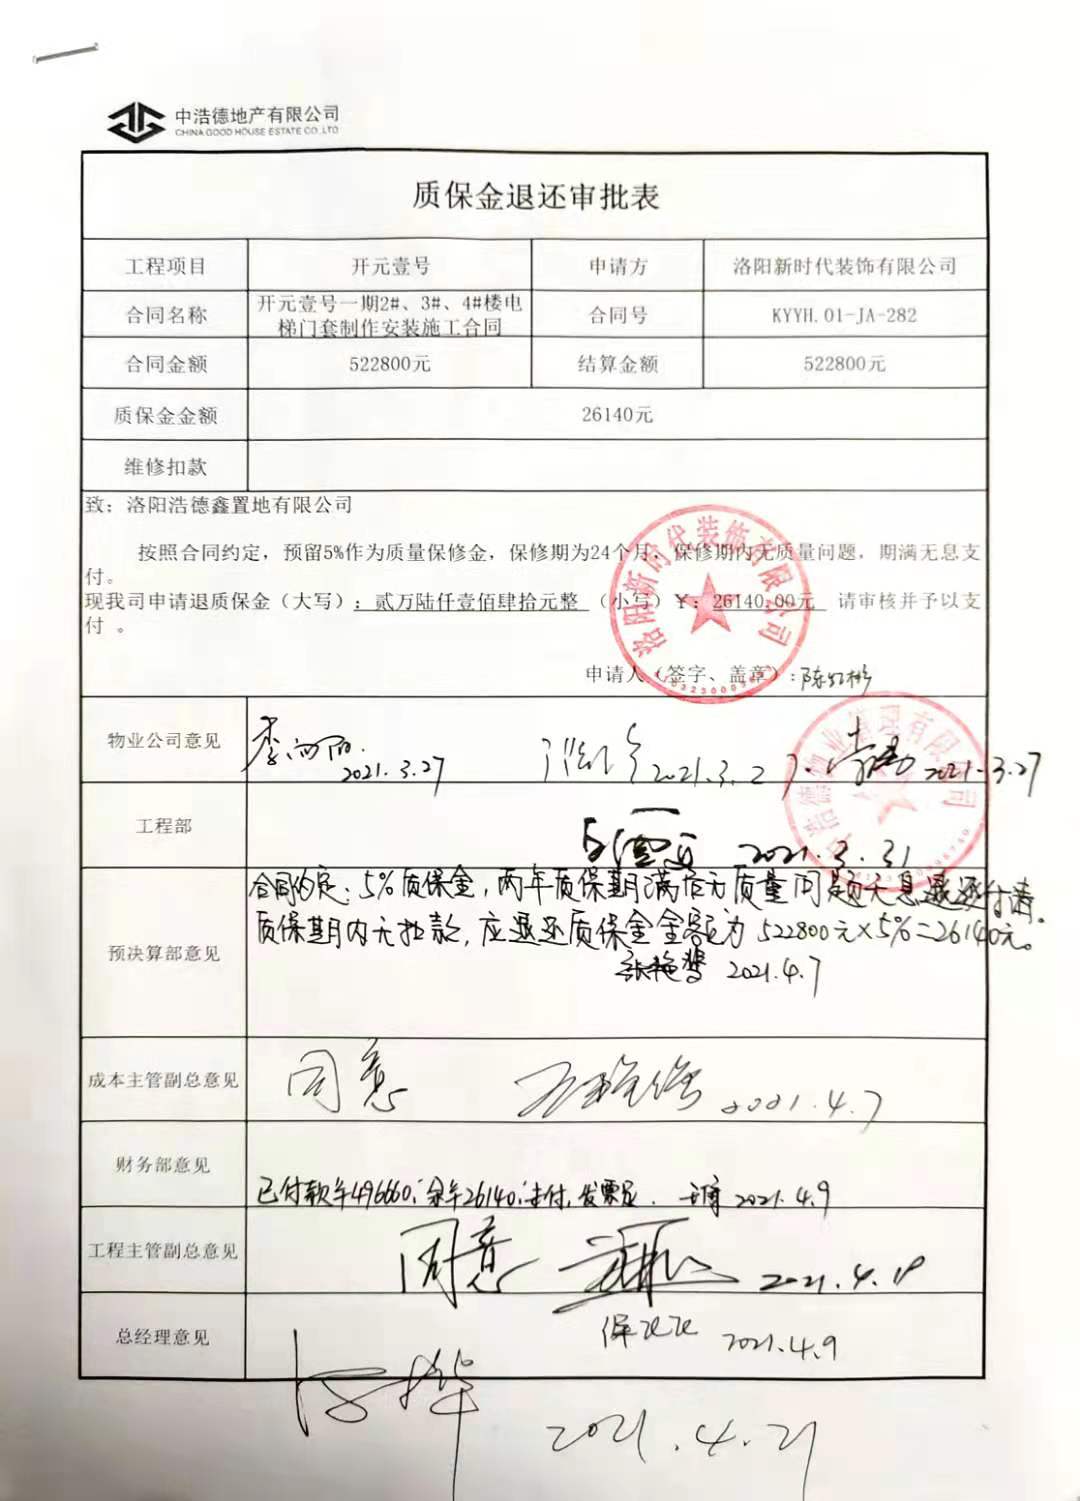 中浩德地产有限公司
CHINA GOOD HOUSE ESTATE CO.,LTD
质保金退还审批表
工程项目 开元壹号 申请方 洛阳新时代装饰有限公司
合同名称 开元壹号一期2#、3#、4#楼电梯门套制作安装施工合同 合同号 KYYH.01-JA-282
合同金额 522800元 结算金额 522800元
质保金金额 26140元
维修扣款
致：洛阳浩德鑫置地有限公司
按照合同约定，预留5%作为质量保修金，保修期为24个月，保修期内无质量问题，期满无息支
付。
现我司申请退质保金（大写）：贰万陆仟壹佰肆拾元整 （小写）￥：26140.00元 请审核并予以支
付 。
洛阳新时代装饰有限公司
申请人（签字、盖章）：
物业公司意见 2021.3.27 2021.3.27 2021.3.27
物业管理有限公司
工程部 2021.3.31
预决算部意见
合同约定：5%质保金，两年质保期满后无质量问题无息退还付清。
质保期内无扣款，应退还质保金金额为522800元×5%=26140元。
2021.4.7
成本主管副总意见 同意 2021.4.7
财务部意见 已付款¥496660，余¥26140未付，发票足. 2021.4.9
工程主管副总意见 同意 2021.4.19
总经理意见 2021.4.9
2021.4.21